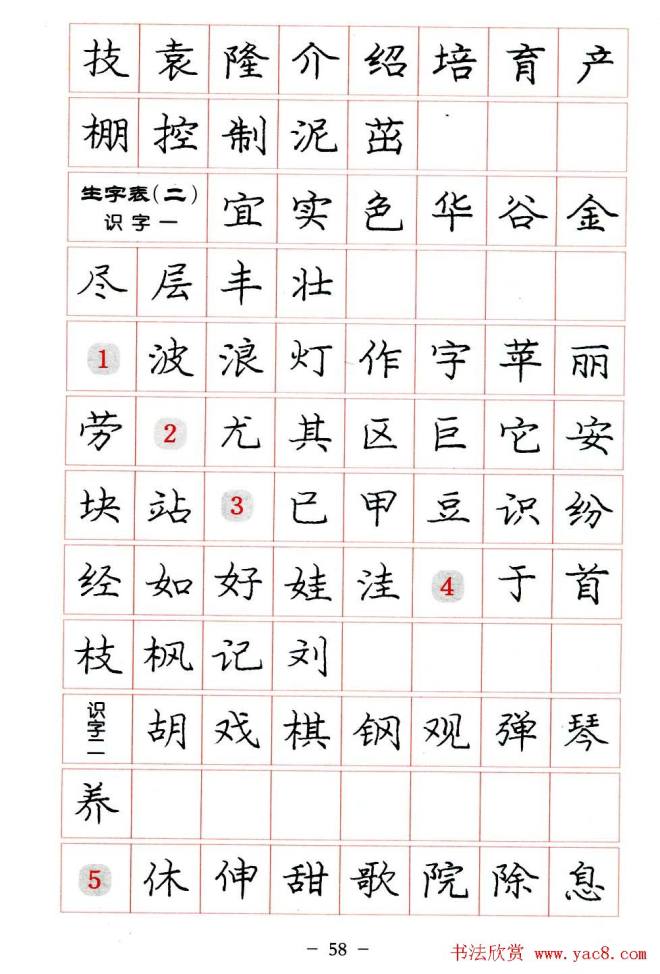 技袁隆介绍培育产
棚控制泥茁
生字表(二) 识字一 宜实色华谷金
尽层丰壮
1 波浪灯作字苹丽
劳 2 尤其区巨它安
块站 3 已甲豆识纷
经如好娃洼 4 于首
枝枫记刘
识字二 胡戏棋钢观弹琴
养
5 休伸甜歌院除息
- 58 -
书法欣赏 www.yac8.com